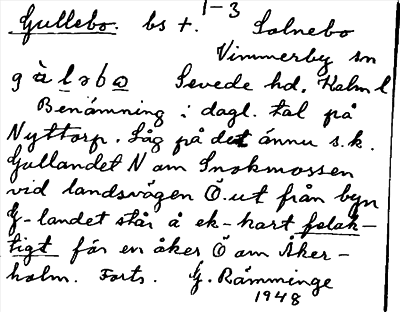 1-3
Gullebo. bs +. Solnebo
Vimmerby sn
g à l ə b ω Sevede hd. Kalm l
Benämning i dagl. tal på
Nyttorp. Låg på det ännu s.k.
Gullandet N om Snokmossen
vid landsvägen Ö. ut från byn
G-landet står å ek-kart felak-
tigt för en åker Ö om Åker-
holm. Forts. G. Rämminge
1948